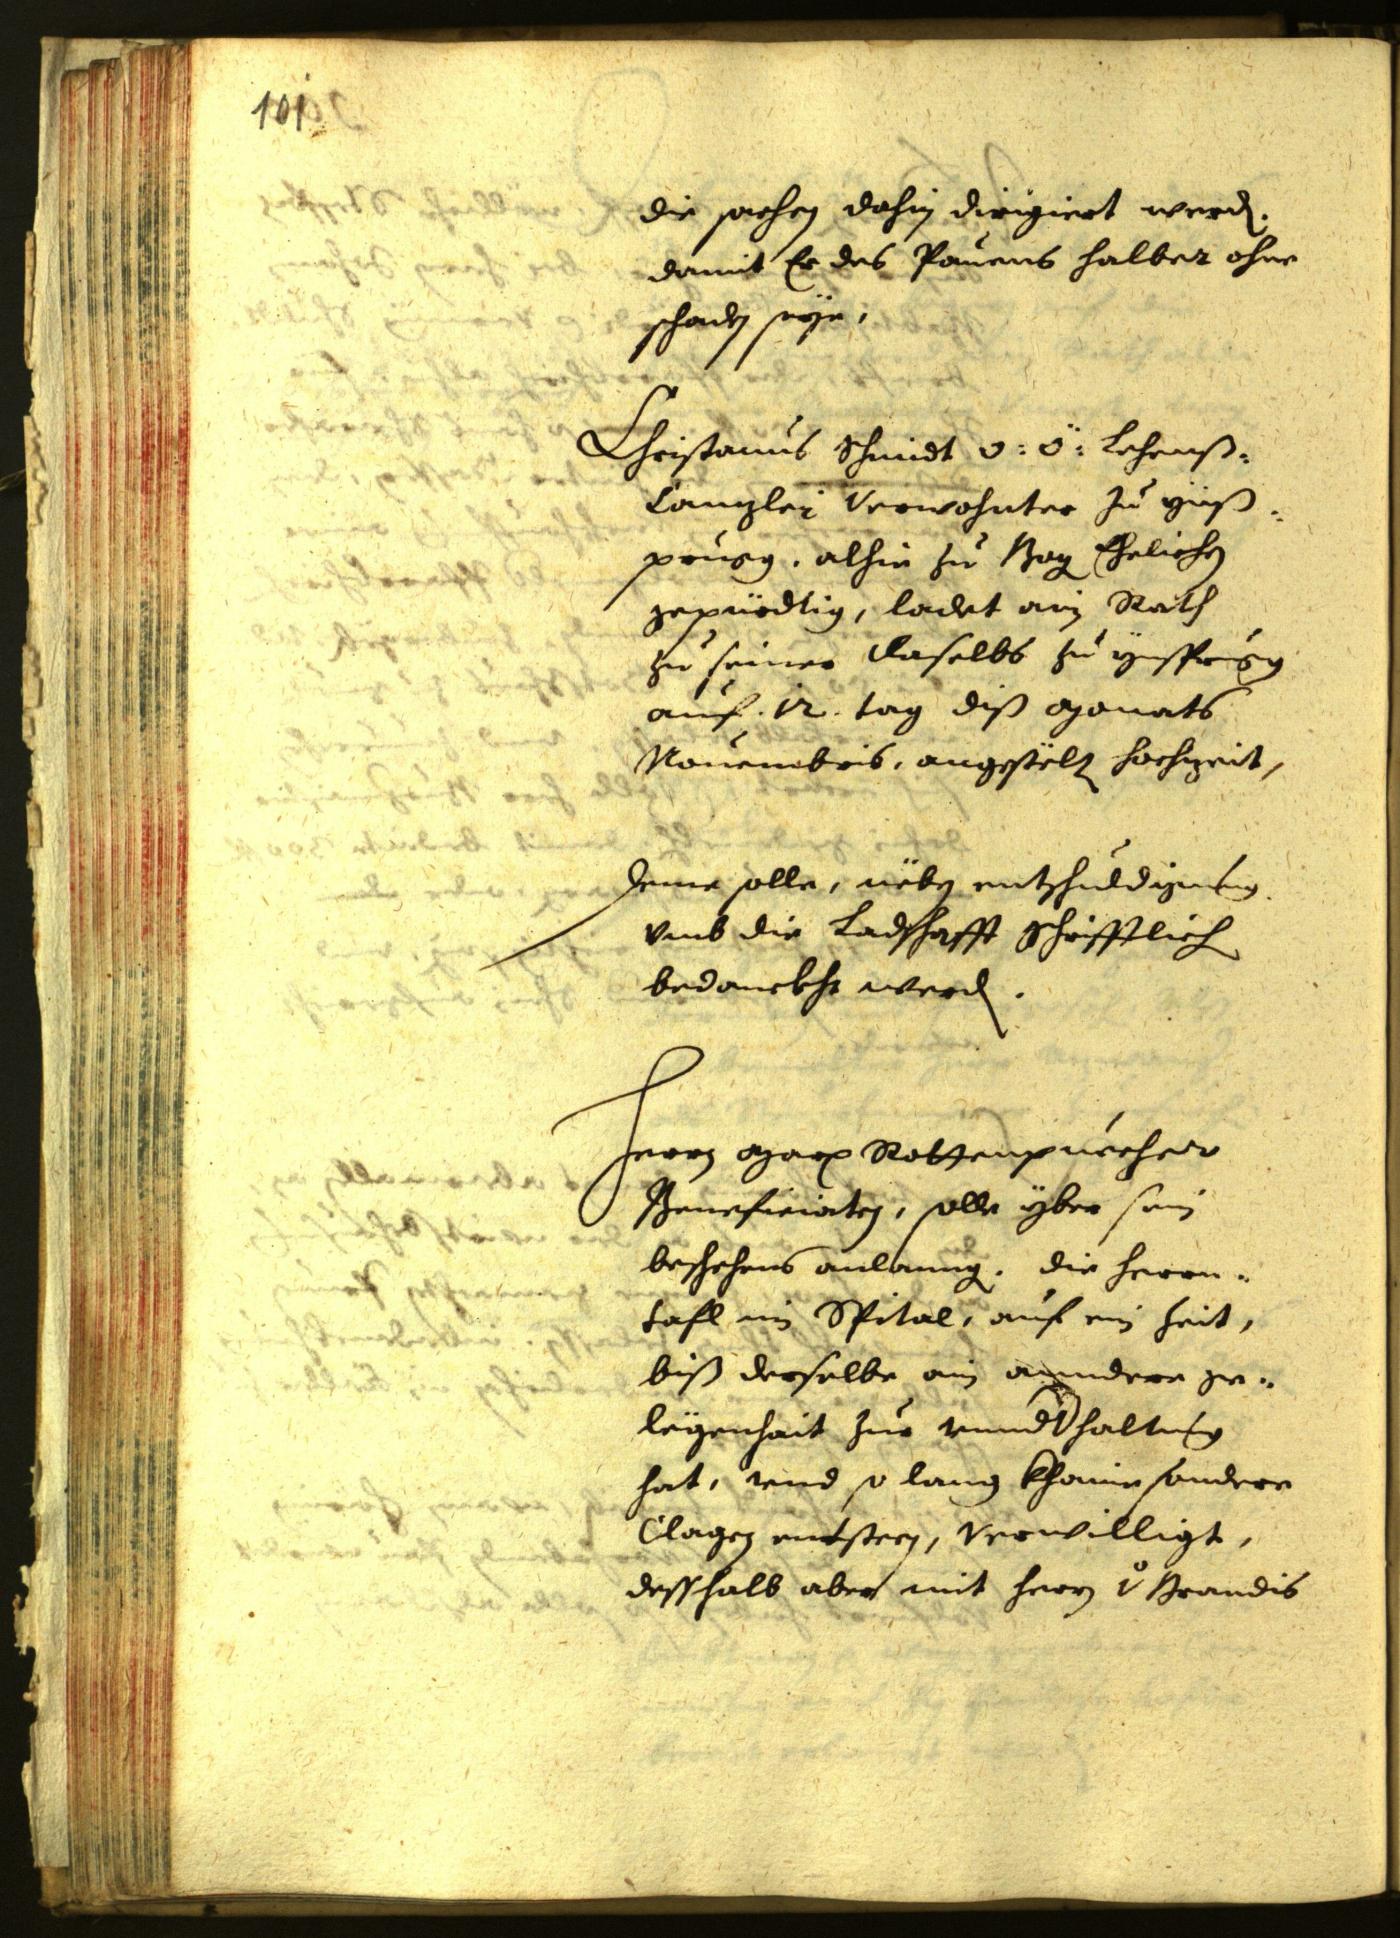 101
die sachen dahin dirigiert werd.
damit Er des Pauens halber ohne
schaden seye,
Christanus Schmidt o: ö: Lehenß=
Canzlei Verwohnter zu ynß=
prugg. alhie zu Bozen Ehelichen
gepürdtig, ladet ain Rath
zu seiner daselbs zu ynsprugg
auf. 12. tag diß monats
Nouembris, angestelt hochzeit,
Deme solle, neben entschuldigung
vmb die Ladschafft schrifftlich
bedanckht werd.
Herrn Marx Rottenpuecher
Beneficiaten, solle yber sein
beschehens anlanng. die herrn=
tafl im Spital, auf ein Zeit,
biß derselbe ain anndere ge=
legenhait zur vnndthaltung
hat, vnd so lang khaine sondere
Clagen entsteen, Verwilligt,
desshalb aber mit herrn v Brandis